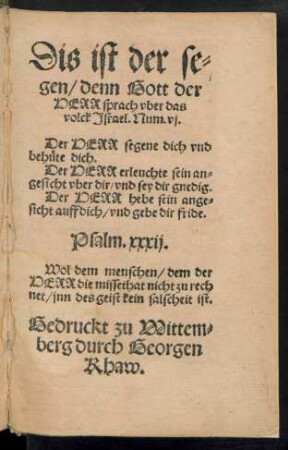 Dis ist der se-
gen/denn Gott der
HERR sprach vber das
volck Israel. Num. vj.
Der HERR segene dich vnd
behüte dich.
Der HERR erleuchte sein an-
gesicht vber dir/vnd sey dir gnedig.
Der HERR hebe sein ange-
sicht auff dich/vnd gebe dir fride.
Psalm. xxxij.
Wol dem menschen/dem der
HERR die missethat nicht zu rech
net/jnn des geist kein falscheit ist.
Gedruckt zu Wittem-
berg durch Georgen
Rhaw.